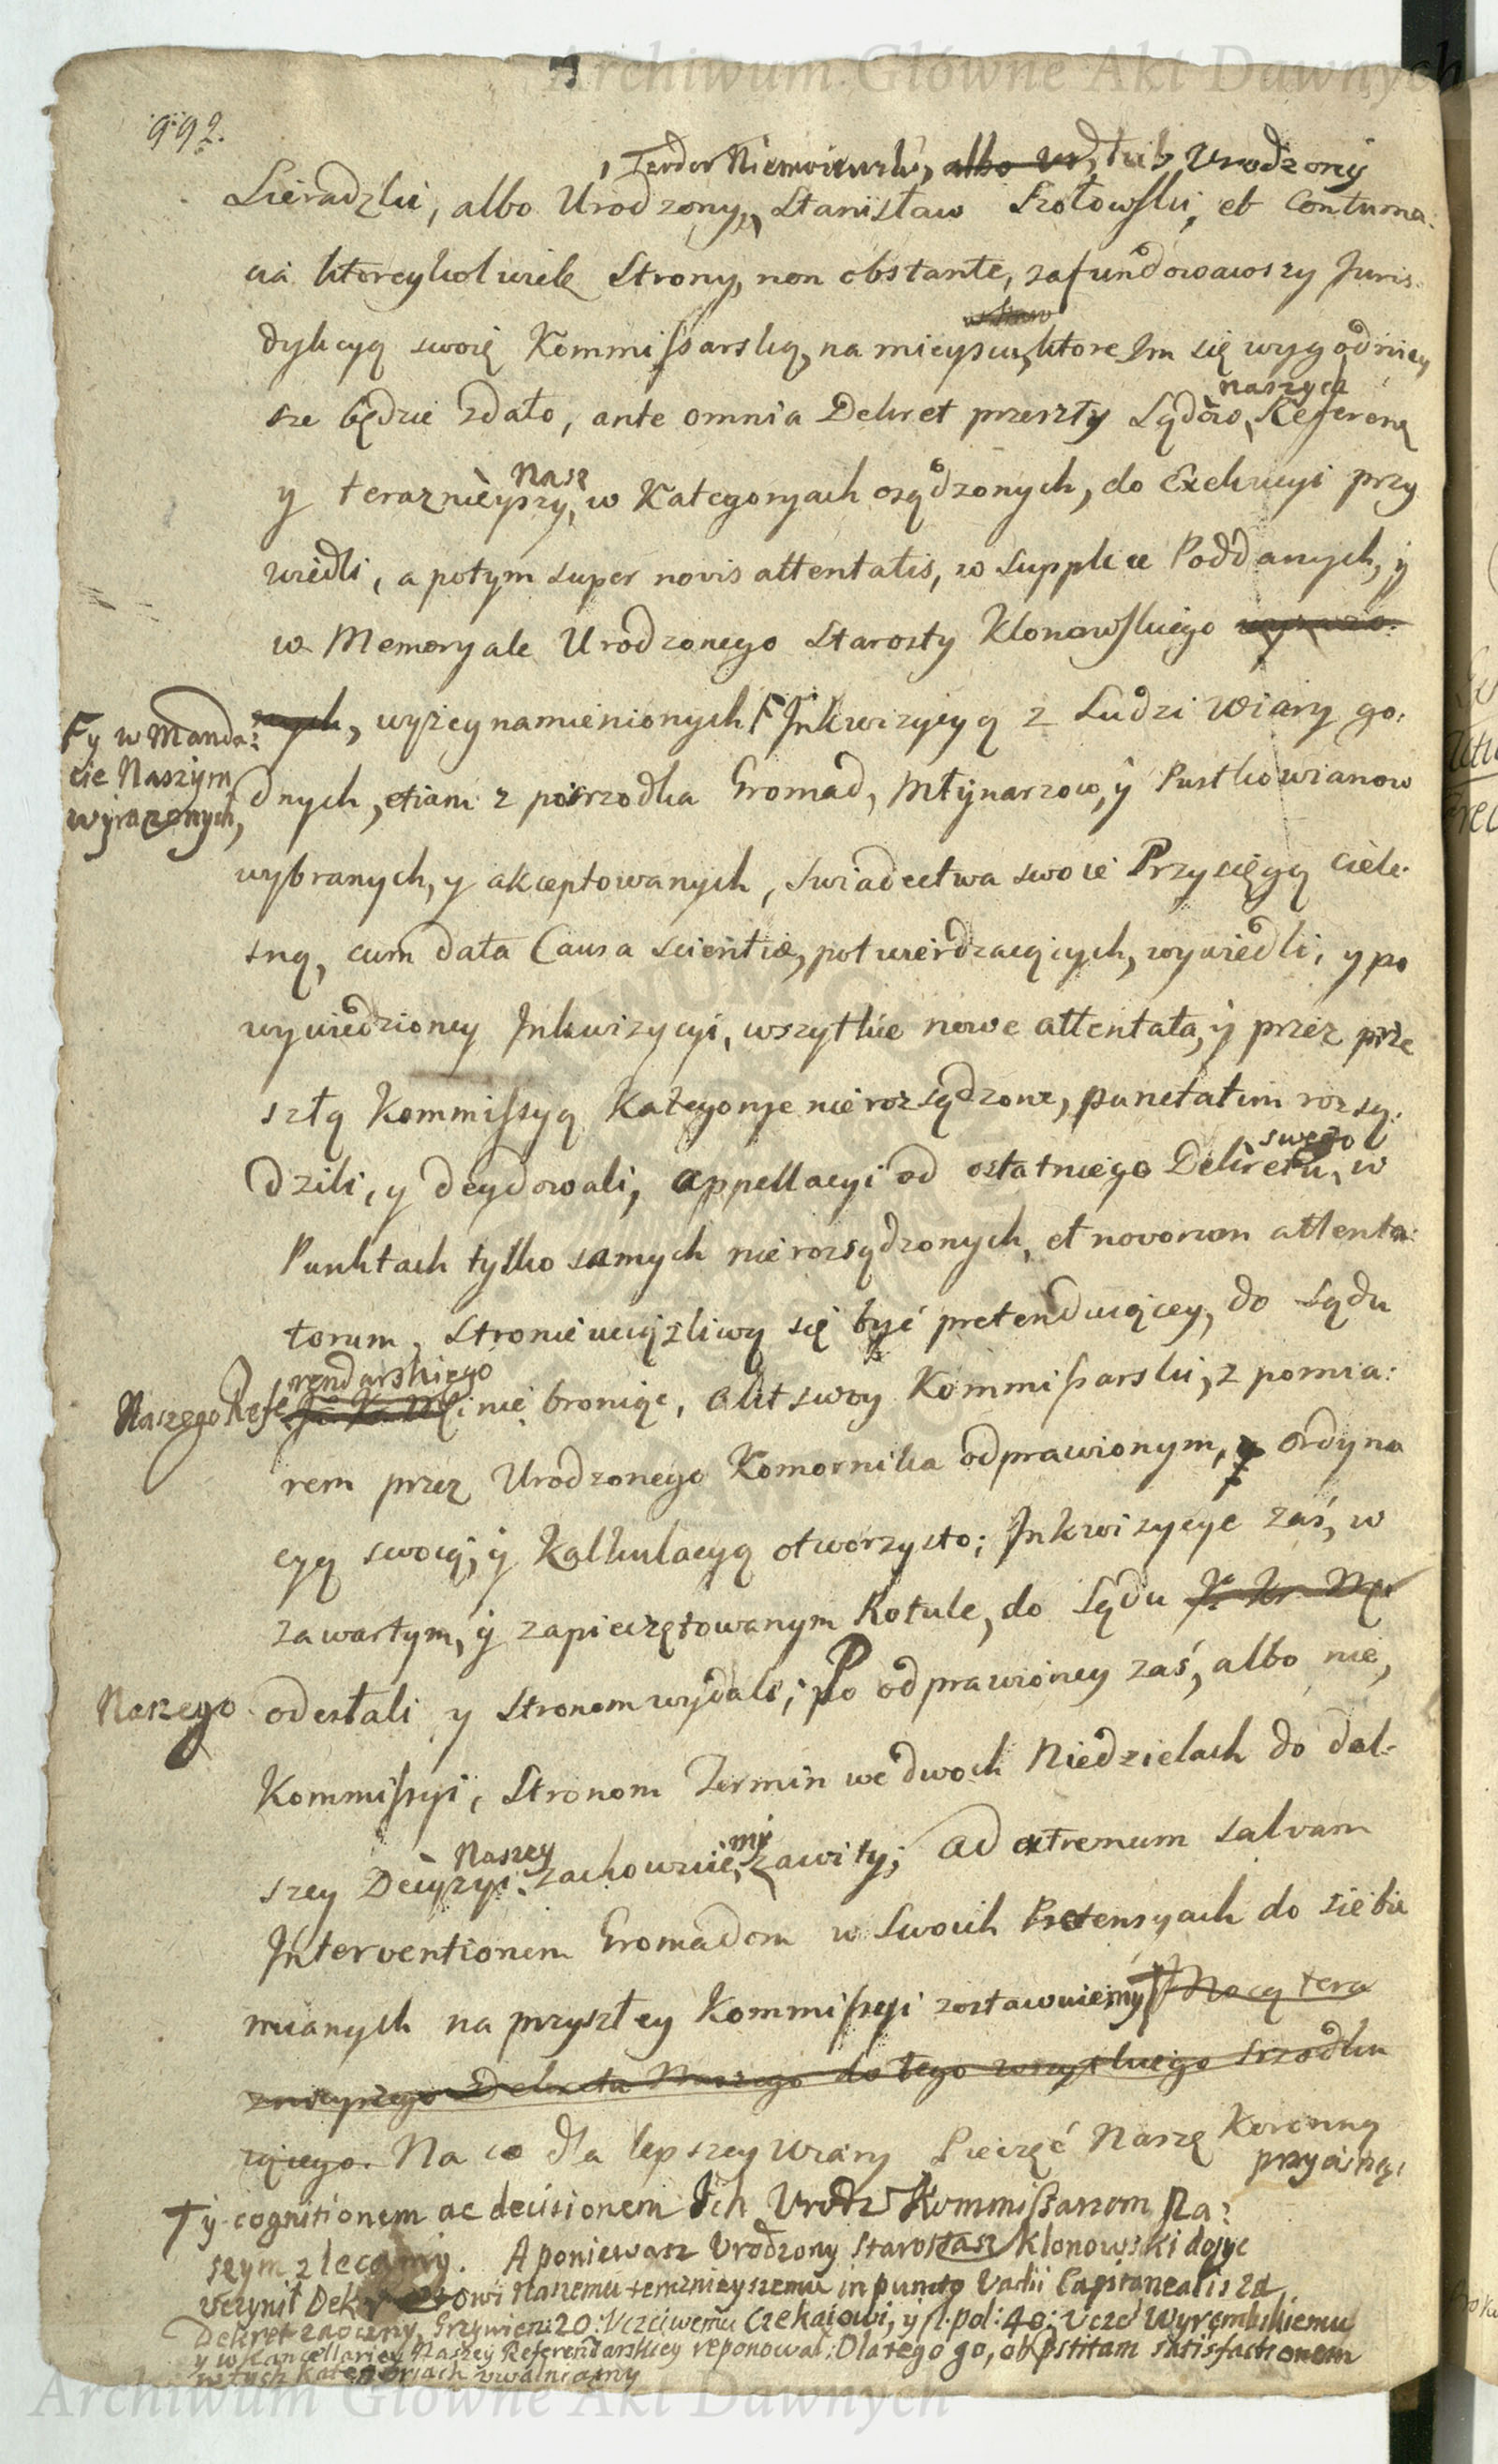 Archiwum Główne Akt Dawnych
992.
, Teodor Niemoiewski, albo Ur, lub Urodzony
Sieradzki, albo Urodzony, Stanisław Szołowski, et Contuma:
cia ktoreykolwiek Strony, non obstante, zafundowawszy Juris:
dykcyą swoię Kommissarską, na mieyscu, ktore Im się wygodniey
sze będzie zdało, ante omnia Dekret przeszły Sądow naszych Referen
y teraznieyszy Nasz, w Kategoryach osądzonych, do Exekucyi przy
wiedli, a potym super novis attentatis, w supplice Poddanych, y
w Memoryale Urodzonego Starosty Klonowskiego wyrazo:
nych, wyżey namienionych Ƒ Inkwizycyą z Ludzi Wiary go:
Ƒ y w Manda:
cie Naszym
wyrazonych,
dnych, etiam z posrzodka Gromad, Młynarzow, y Pustkowianow
wybranych, y akceptowanych, swiadectwa swoie Przysięgą ciele:
sną, cum data Causa scientiæ, potwierdzaiących, wywiedli, y po
wywiedzioney Inkwizycyi, wszytkie nowe attentata, y przez prze
szłą Kommissyą Kategorye nierozsądzone, punctatim rozsą:
dzili, y decydowali, appellacyi od ostatniego Dekretu swego, w
Punktach tylko samych nierozsądzonych, et novorum attenta:
torum, stronie uciążliwą się być pretenduiącey, do Sądu
Naszego Refe rendarskiego J. K. Mci nie broniąc, Akt swoy Kommissarski, z pomia:
rem przez Urodzonego Komornika odprawionym, y ordyna
cyą swoią, y Kalkulacyą otworzysto; Inkwizycye zaś, w
zawartym, y zapieczętowanym Rotule, do Sądu J. Kr. Mci
Naszego odesłali y Stronom wydali; Po odprawioney zaś, albo nie,
Kommissyi, Stronom Termin we dwoch Niedzielach do dal:
szey Decyzyi Naszey zachowuiemy zawity; Ad extremum salvam
Interventionem Gromadom w Swoich Pretensyach do siebie
mianych na przyszłey Kommissyi zostawuiemy Ƭ Mocą tera
znieyszego Dekretu Naszego do tego wszytkiego srzodku
iącego. Na co dla lepszey Wiary Pieczęć Naszę Koronną
przycisnąć
Ƭ y cognitionem ac decisionem Ich Urodz Kommissarzom Na:
szym zlecamy. A poniewasz Urodzony Starostasz Klonowski dosyc
uczynił Dekretowi Naszemu teraznieyszemu in puncto Vadii Capitanealis za
Dekret zaoczny, Grzywien: 20: Uczciwemu Czekaiowi, y fl. pol: 40: Ucz: Wyrembskiemu
y w Kancellaryey Naszey Referendarskiey reponował; Dlatego go, ob pstitam satisfactionem
w tych Kategoriach uwalniamy
Archiwum Główne Akt Dawnych